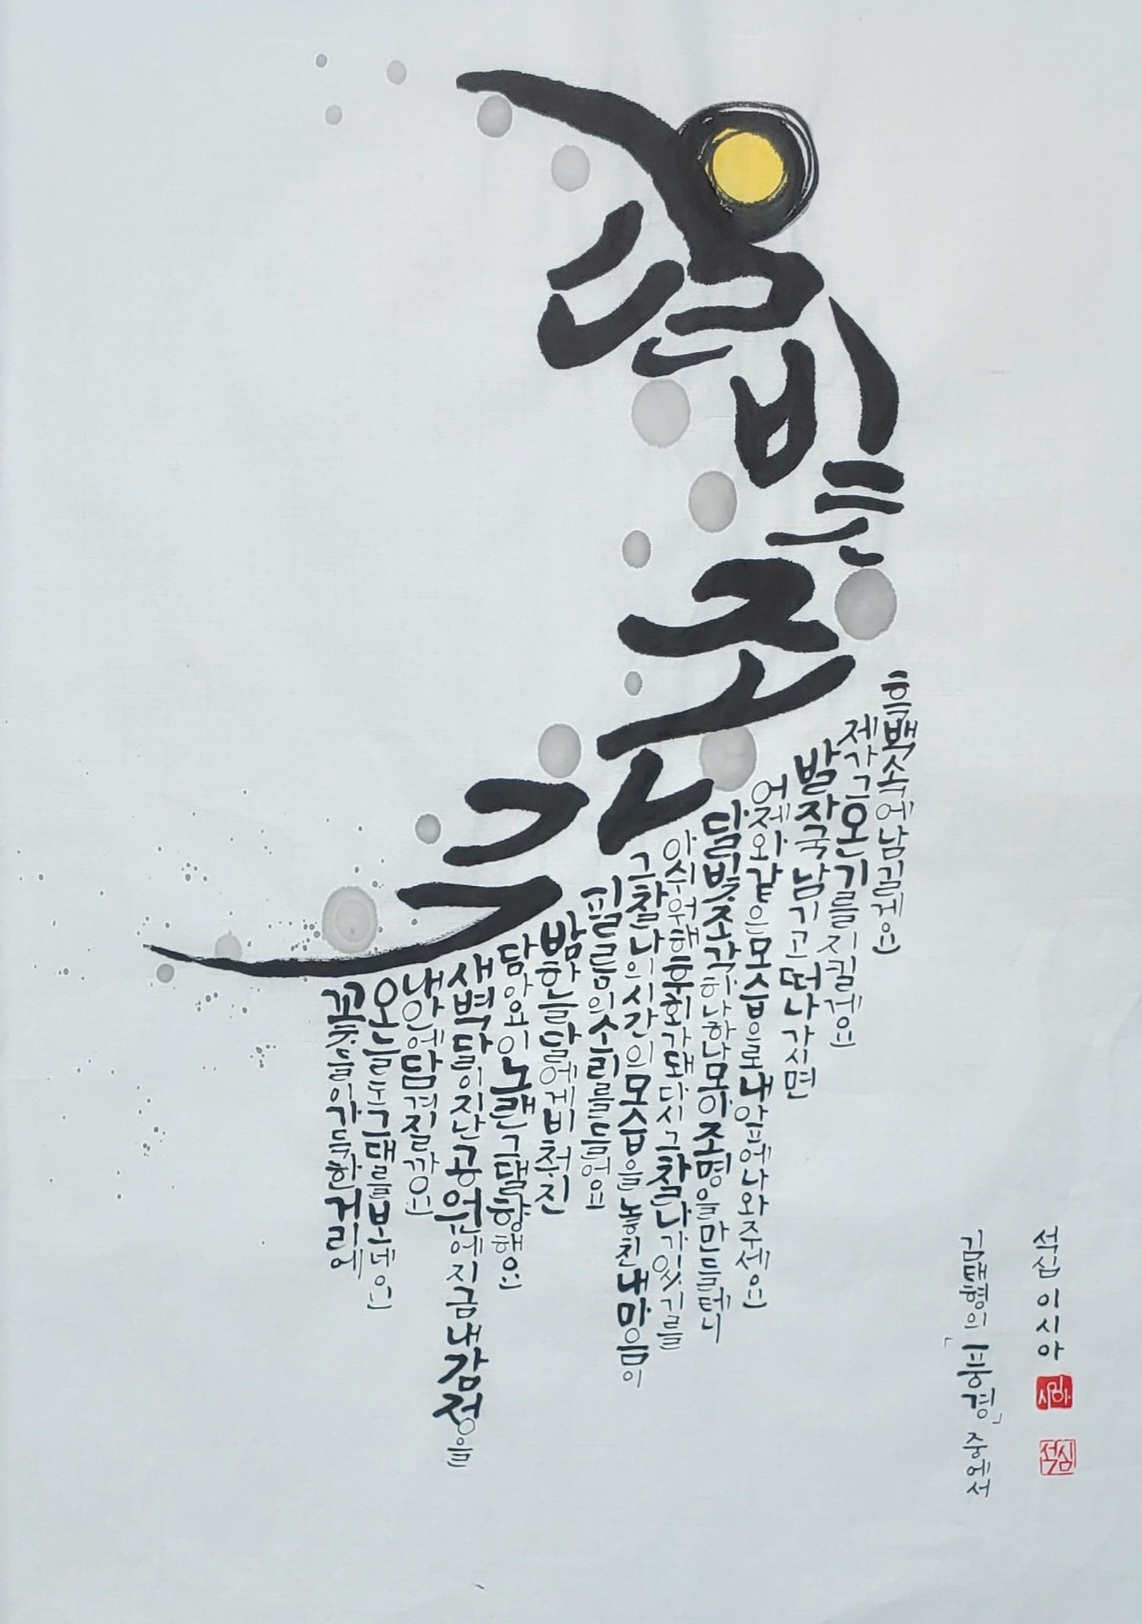 꽃들이가득한거리에
오늘도그대를보네요
내안에담겨질까요
새벽달이지난공원에지금내감정을
담아요이노랜그댈향해요
밤하늘달에게비쳐진
필름의소리를들어요
그찰나의시간의모습을놓친내마음이
아쉬워해후회가돼다시그찰나가있기를
달빛조각하나하나모아조명을만들테니
어제와같은모습으로내앞에나와주세요
발자국남기고떠나가시면
제가그온기를지킬게요
흑백속에남길게요
김태형의「풍경」중에서
석심 이시아
시아
석심